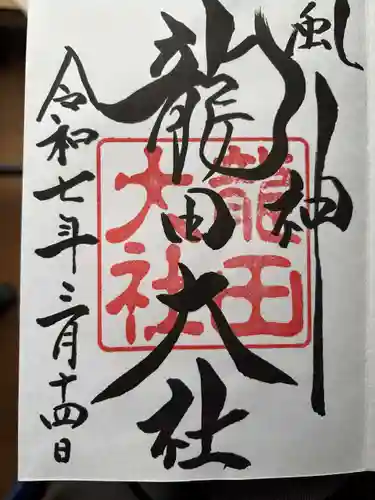 風神
龍田大社
令和七年三月十四日
龍田
大社